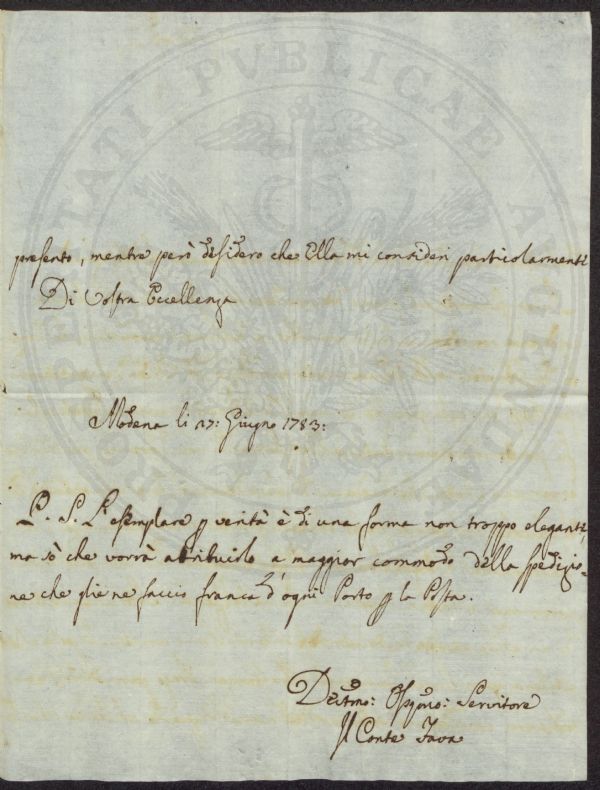 PROSPERITATI PVBLICAE AVGENDAE
presento, mentre però desidero che Ella mi consideri particolarmente
Di Vostra Eccellenza
Modena li 27: Giugno 1783:
P. S. L'esemplare p verità è di una forma non troppo elegante,
ma sò che vorrà attribuirlo a maggior commodo della spedizio=
ne che gliene faccio franca d'ogni Porto p la Posta.
Devmo: Obbmo: Servitore
Il Conte Fava